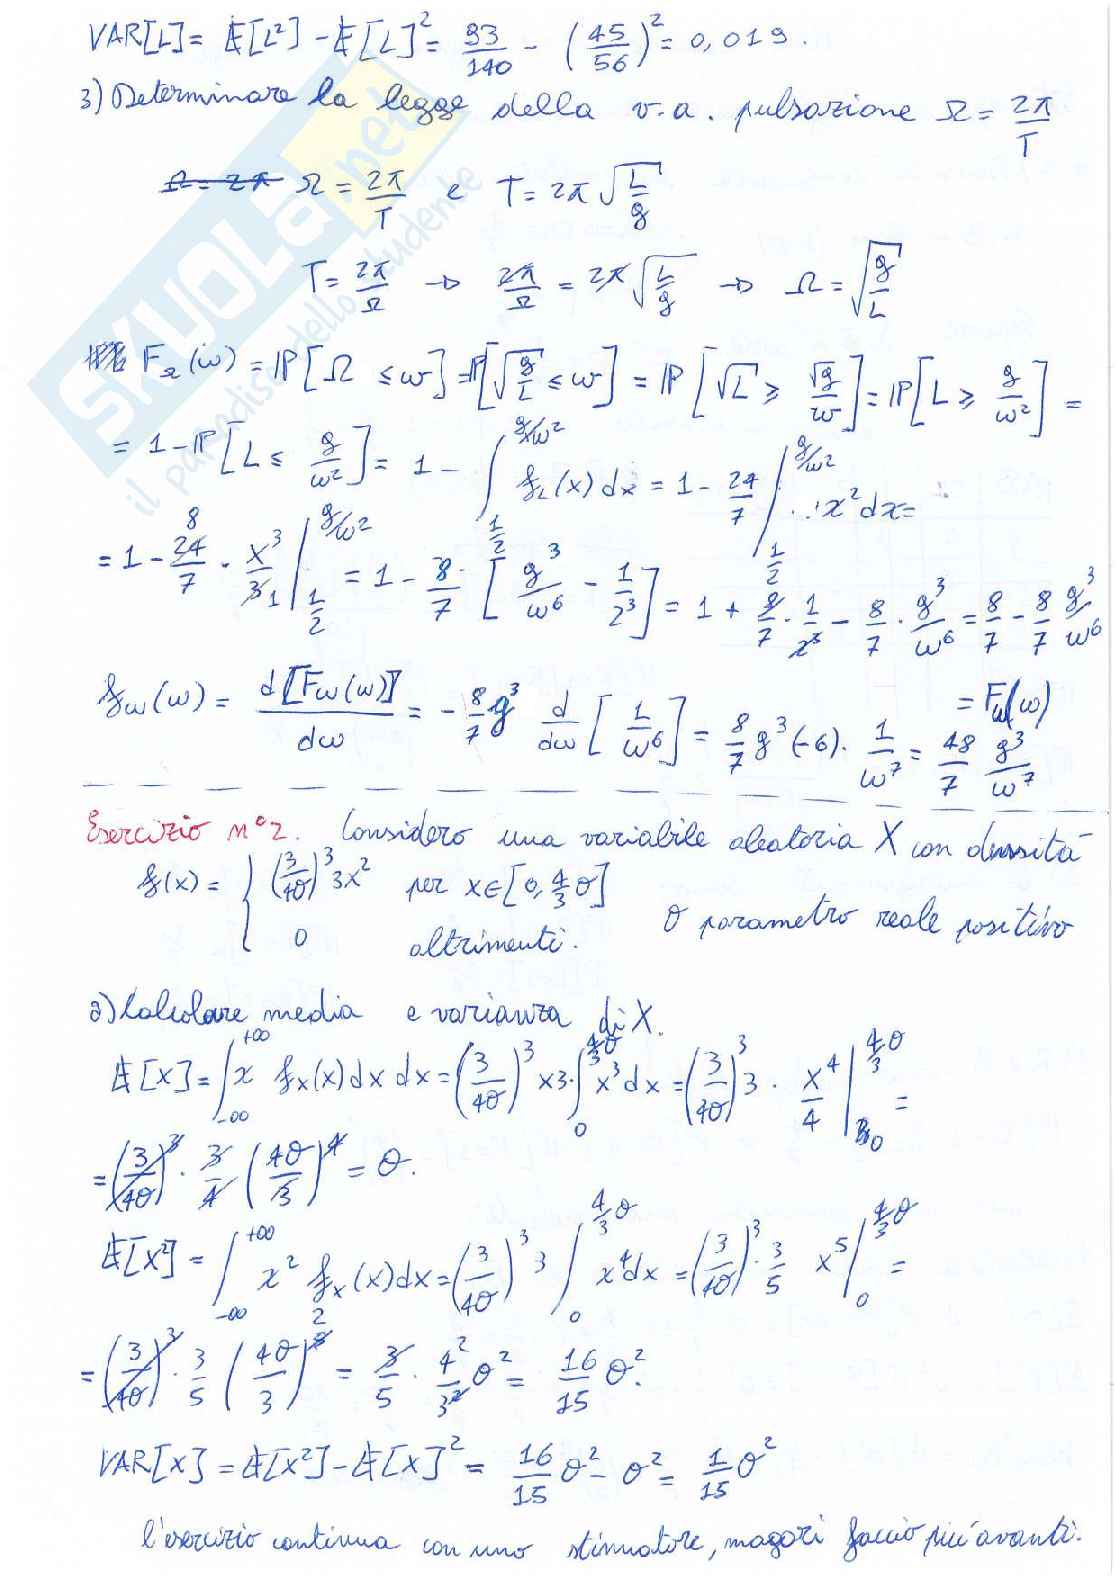 VAR[L] = E[L²] - E[L]² = 93/140 - (45/56)² = 0,019.
3) Determinare la legge della v.a. pulsazione Ω = 2π/T
Ω = 2π Ω = 2π/T e T = 2π √(L/g)
T = 2π/Ω → 2π/Ω = 2π √(L/g) → Ω = √(g/L)
F_Ω(ω) = P[Ω ≤ ω] = P[√(g/L) ≤ ω] = P[√L ≥ √g/ω] = P[L ≥ g/ω²] =
= 1 - P[L ≤ g/ω²] = 1 - ∫_{1/2}^{g/ω²} f_L(x) dx = 1 - 24/7 ∫_{1/2}^{g/ω²} x² dx =
= 1 - 24/7 8 · x³/3 1 |_{1/2}^{g/ω²} = 1 - 8/7 · [g³/ω⁶ - 1/2³] = 1 + 8/7 · 1/2³ - 8/7 · g³/ω⁶ = 8/7 - 8/7 g³/ω⁶
= F_ω(ω)
f_ω(ω) = d[F_ω(ω)]/dω = - 8/7 g³ d/dω [1/ω⁶] = 8/7 g³ (-6) · 1/ω⁷ = 48/7 g³/ω⁷
Esercizio n° 2. Considero una variabile aleatoria X con densità
f(x) = { (3/4θ)³ 3x² per x ∈ [0, 4/3 θ]
0 altrimenti. θ parametro reale positivo
a) Calcolare media e varianza di X.
E[X] = ∫_{-∞}^{+∞} x f_X(x) dx dx = (3/4θ)³ x3 · ∫_0^{4/3 θ} x³ dx = (3/4θ)³ 3 · x⁴/4 |_0^{4/3 θ} =
= (3/4θ)³ · 3/4 (4θ/3)⁴ = θ.
E[X²] = ∫_{-∞}^{+∞} x² f_X(x) dx = (3/4θ)³ 3 ∫_0^{4/3 θ} x⁴ dx = (3/4θ)³ · 3/5 x⁵ |_0^{4/3 θ} =
= (3/4θ)³ · 3/5 (4θ/3)⁵ 2 = 3/5 · 4²/3² θ² = 16/15 θ².
VAR[X] = E[X²] - E[X]² = 16/15 θ² - θ² = 1/15 θ²
l'esercizio continua con uno stimatore, magari faccio più avanti.
SKUOLA.net
il paradiso dello studente